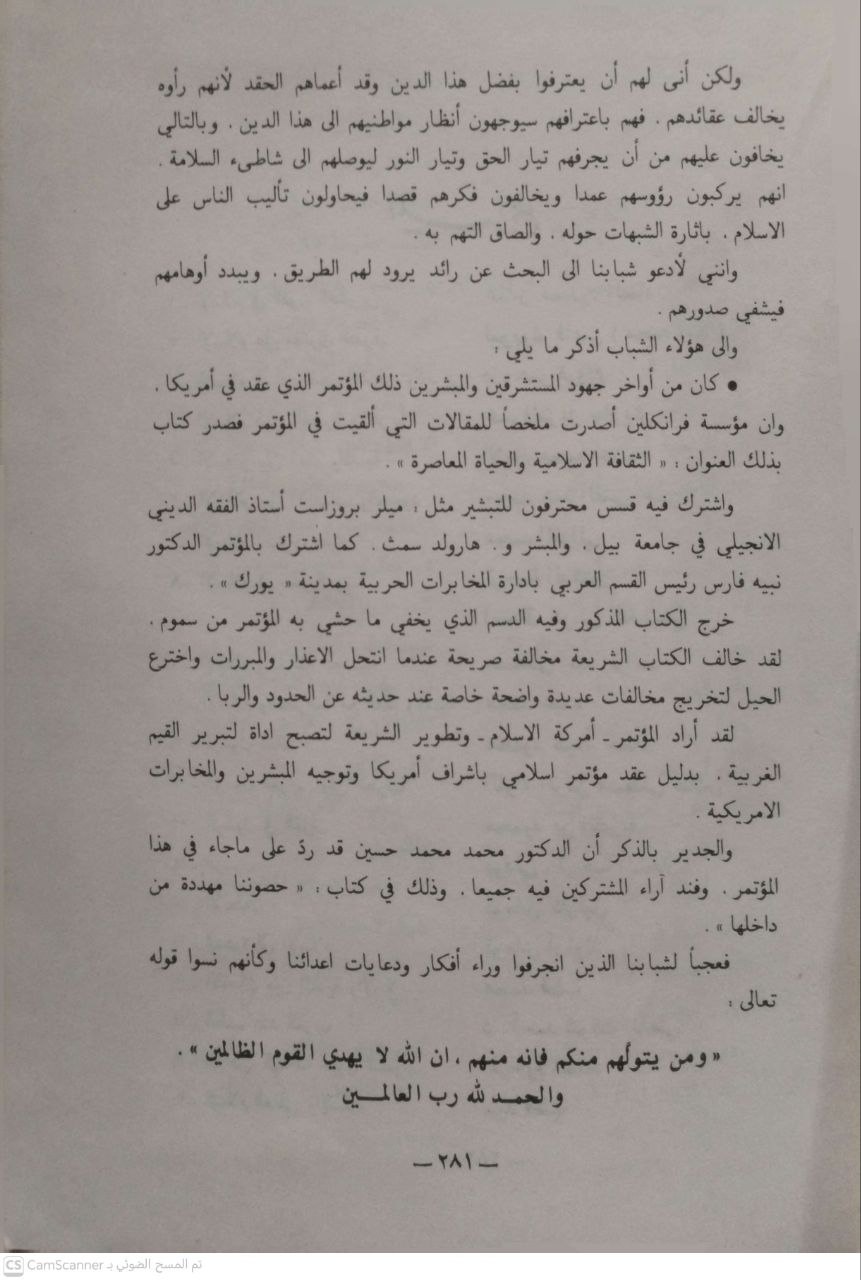 ولكن أنى لهم أن يعترفوا بفضل هذا الدين وقد أعماهم الحقد لأنهم رأوه
يخالف عقائدهم . فهم باعترافهم سيوجهون أنظار مواطنيهم الى هذا الدين . وبالتالي
يخافون عليهم من أن يجرفهم تيار الحق وتيار النور ليوصلهم الى شاطىء السلامة .
انهم يركبون رؤوسهم عمدا ويخالفون فكرهم قصدا فيحاولون تأليب الناس على
الاسلام . باثارة الشبهات حوله . والصاق التهم به .
وانني لأدعو شبابنا الى البحث عن رائد يرود لهم الطريق . ويبدد أوهامهم
فيشفي صدورهم .
والى هؤلاء الشباب أذكر ما يلي :
• كان من أواخر جهود المستشرقين والمبشرين ذلك المؤتمر الذي عقد في أمريكا .
وان مؤسسة فرانكلين أصدرت ملخصاً للمقالات التي ألقيت في المؤتمر فصدر كتاب
بذلك العنوان : « الثقافة الاسلامية والحياة المعاصرة » .
واشترك فيه قسس محترفون للتبشير مثل : ميلر بروزاست أستاذ الفقه الديني
الانجيلي في جامعة بيل . والمبشر و . هارولد سمث . كما اشترك بالمؤتمر الدكتور
نبيه فارس رئيس القسم العربي بادارة المخابرات الحربية بمدينة « يورك » .
خرج الكتاب المذكور وفيه الدسم الذي يخفي ما حشي به المؤتمر من سموم .
لقد خالف الكتاب الشريعة مخالفة صريحة عندما انتحل الاعذار والمبررات واخترع
الحيل لتخريج مخالفات عديدة واضحة خاصة عند حديثه عن الحدود والربا .
لقد أراد المؤتمر ـ أمركة الاسلام ـ وتطوير الشريعة لتصبح اداة لتبرير القيم
الغربية . بدليل عقد مؤتمر اسلامي باشراف أمريكا وتوجيه المبشرين والمخابرات
الامريكية .
والجدير بالذكر أن الدكتور محمد محمد حسين قد ردّ على ماجاء في هذا
المؤتمر . وفند آراء المشتركين فيه جميعا . وذلك في كتاب : « حصوننا مهددة من
داخلها » .
فعجباً لشبابنا الذين انجرفوا وراء أفكار ودعايات اعدائنا وكأنهم نسوا قوله
تعالى :
« ومن يتولّهم منكم فانه منهم ، ان الله لا يهدي القوم الظالمين » .
والحمـد لله رب العالمـــين
— ٢٨١ —
CS CamScanner تم المسح الضوئي بـ